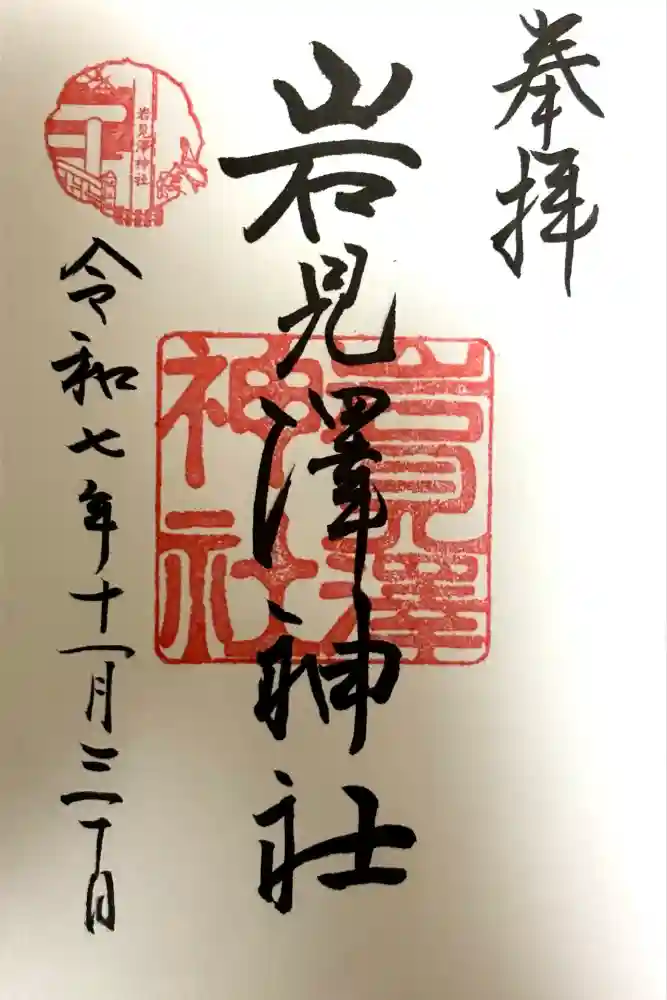 奉拝
岩見澤神社
岩見澤
神社
岩見澤神社
令和七年十一月三十日